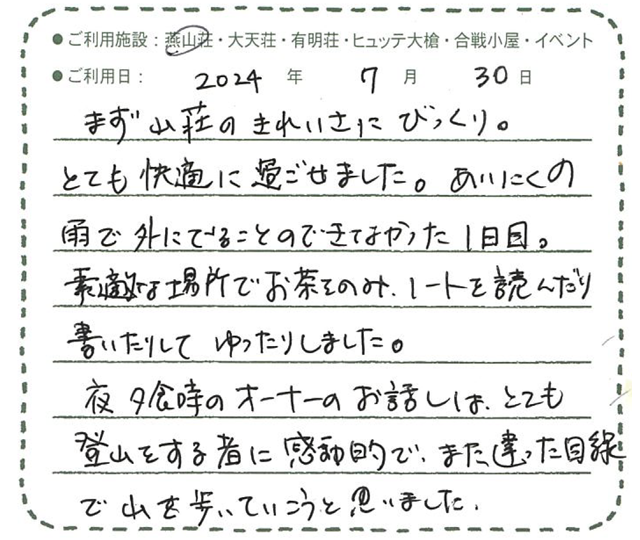 ● ご利用施設：燕山荘・大天荘・有明荘・ヒュッテ大槍・合戦小屋・イベント
● ご利用日： 2024 年 7 月 30 日
まず山荘のきれいさにびっくり。
とても快適に過ごせました。あいにくの
雨で外にでることのできなかった1日目。
素適な場所でお茶をのみ、ノートを読んだり
書いたりして ゆったりしました。
夜夕食時のオーナーのお話しは、とても
登山をする者に感動的で、また違った目線
で山を歩いていこうと思いました。